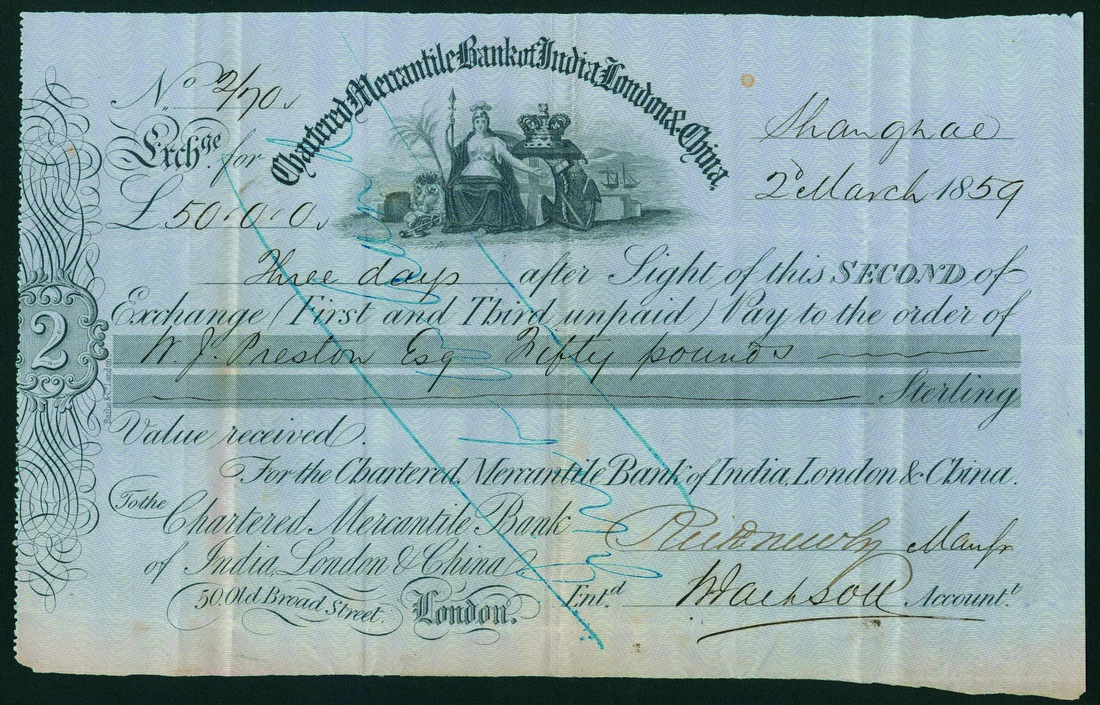 Chartered Mercantile Bank of India, London & China.
No 2/70
Exchge for
£ 50.0.0
Shanghae
2d March 1859
Three days after Sight of this SECOND of
Exchange (First and Third unpaid) Pay to the order of
W. J. Preston Esq Fifty pounds
Sterling
2
Value received.
For the Chartered Mercantile Bank of India, London & China.
To the
Chartered Mercantile Bank
of India, London & China
50, Old Broad Street. London.
Manfr
Entd. Jackson Accountt.